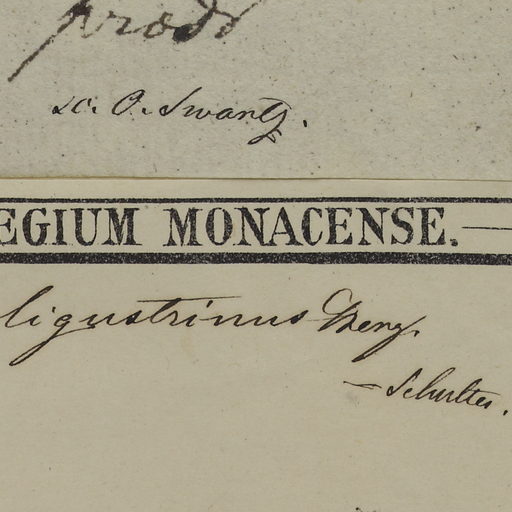 prod
sc. O. Swartz.
EGIUM MONACENSE.
ligustrinus Berg.
— Schultes.